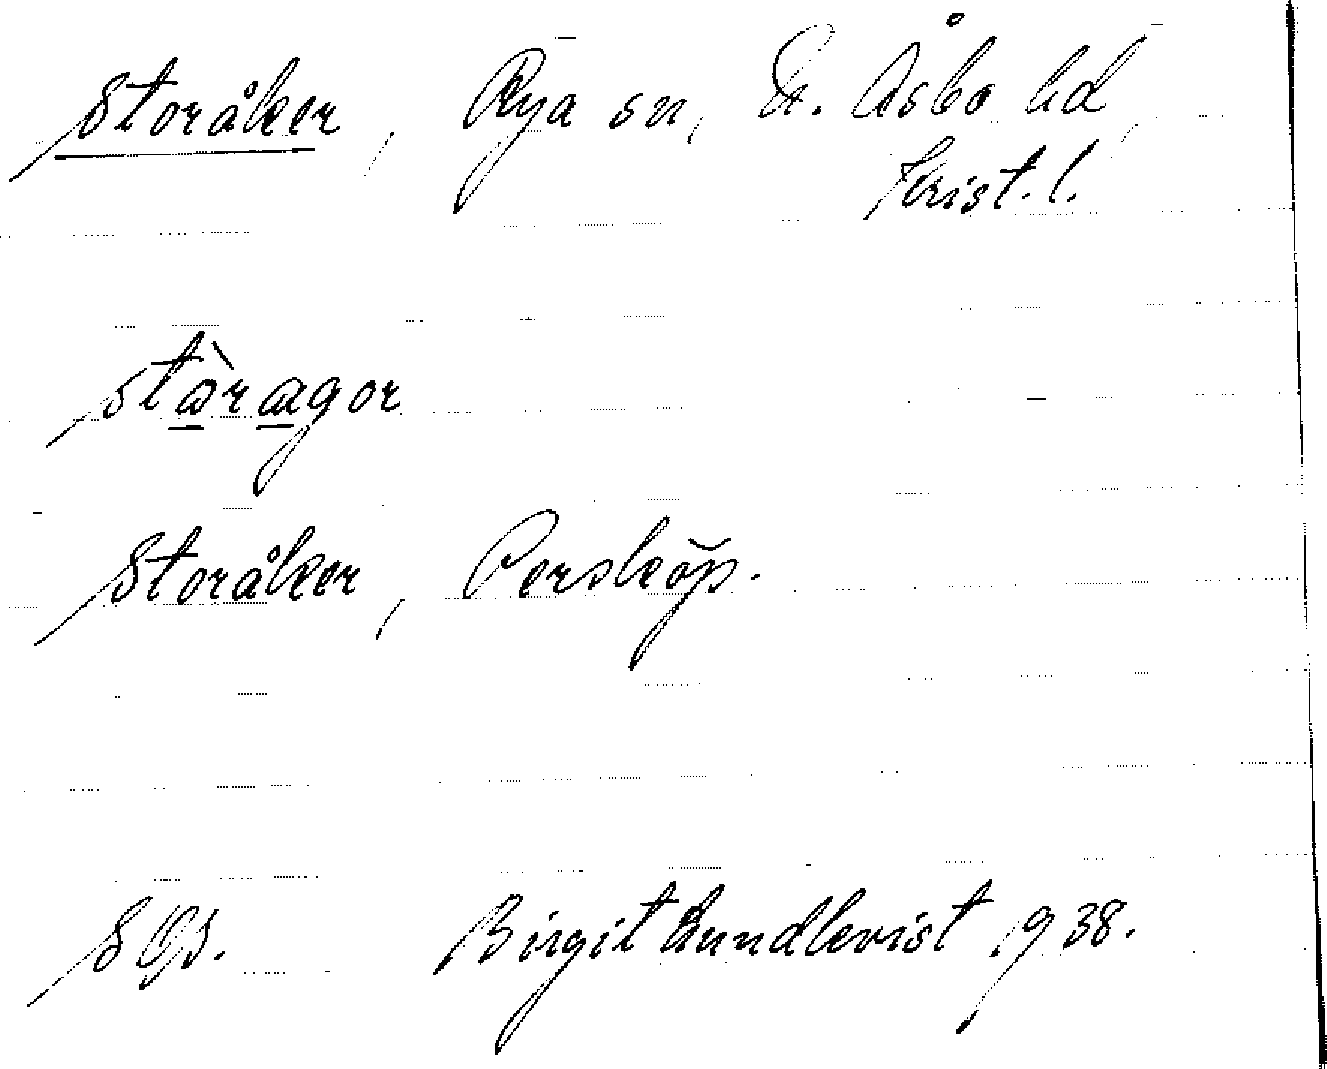 Storåker, Rya sn, N. Åsbo hd,
Krist. l.
stòrägor
Storåker, Persköp.
Birgit Lundkvist 1938.